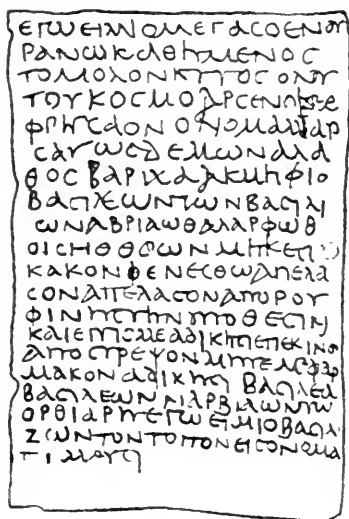 ΕΓΩΕΙΜΙΟΜΕΓΑϹΟΕΝΟΥ
ΡΑΝΩΚΑΘΗΜΕΝΟϹ
ΤΟΜΟΛΟΝΚΥΤΟϹΟΛΟΥ
ΤΟΥΚΟϹΜΟΑΡϹΕΝΟ
ΦΡΗϹΑΟΝΟΝΟΜΑΜΙΑΡ
ϹΑΥΩϹΔΕΜΩΝΑΓΑ
ΘΟϹΒΑΡΙΧΑΑΚΜΗΦΙΟ
ΒΑϹΙΛΕΩΝΤΩΝΒΑϹΙΛΙ
ΩΝΑΒΡΙΑΩΘΑΛΑΡΦΩΘ
ΟΙϹΗΘΘΕΩΝΜΗΚΕΤΙ
ΚΑΚΟΝΦΕΝΕϹΘΩΑΠΕΛΑ
ϹΟΝΑΠΕΛΑϹΟΝΑΠΟΡΟΥ
ΦΙΝΗϹΤΗΝΥΠΟΘΕϹΙΝ
ΚΑΙΕΙΤΙϹΜΕΑΔΙΚΗϹΕΠΕΚΙΝΟ
ΑΠΟϹΤΡΕΨΟΝΜΗΤΕΜΕΦΑΡ
ΜΑΚΟΝΑΔΙΚΗϹΙΒΑϹΙΛΕΑ
ΒΑϹΙΛΕΩΝΝΙΑΡΒΙΛΩΝΤΩ
ΟΡΘΙΑΡΗΕΓΩΕΙΜΙΟΒΑϹΙΛ
ΖΩΝΤΟΝΤΟΠΟΝΕΙϹΟΝΟΜΑ
ΤΙΜΟΥϹΙ